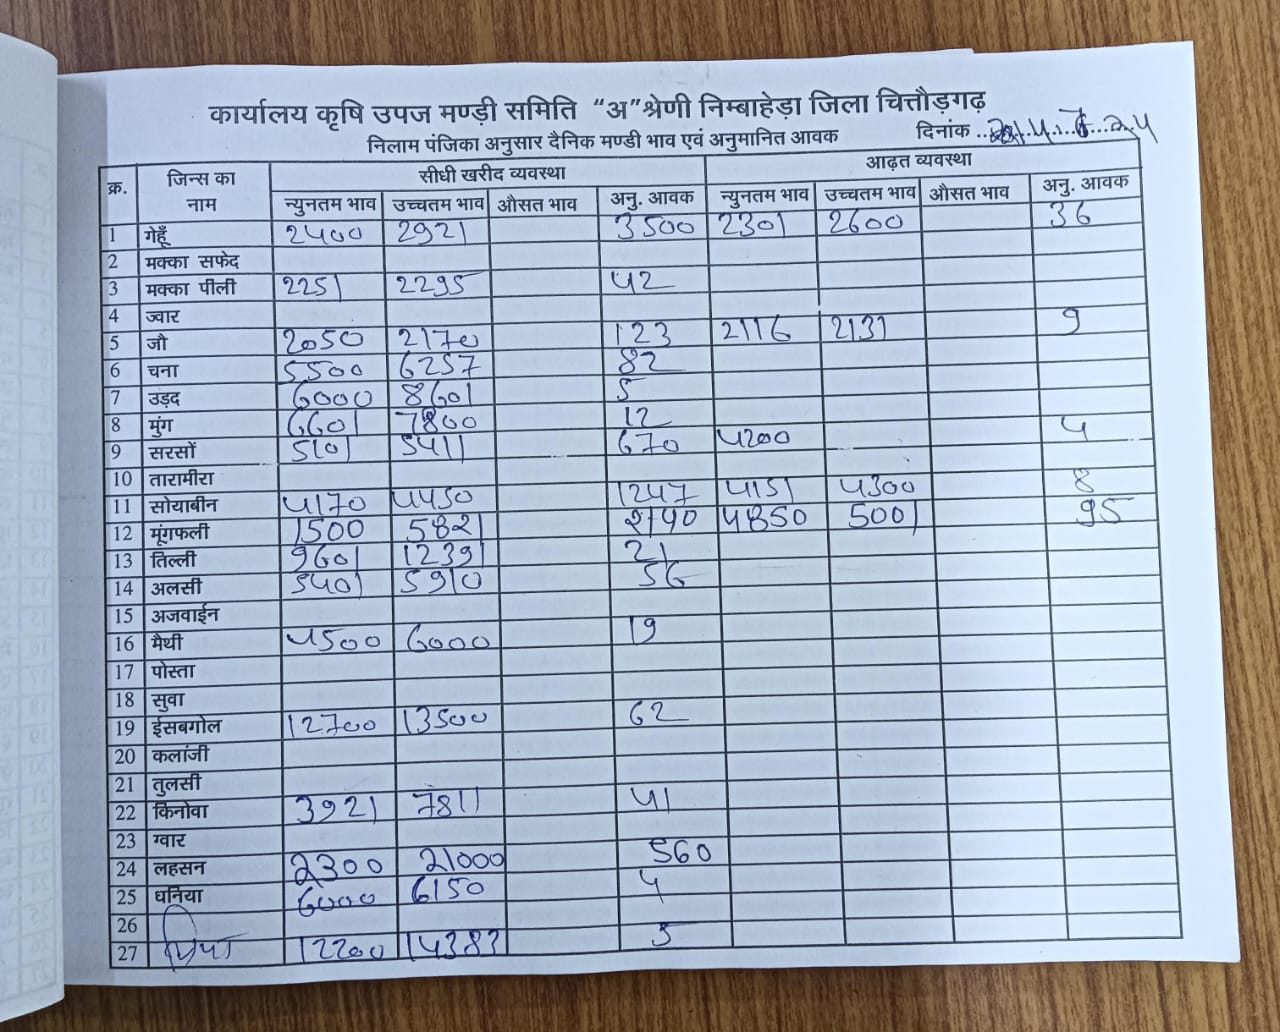 कार्यालय कृषि उपज मण्डी समिति “अ”श्रेणी निम्बाहेड़ा जिला चित्तौड़गढ़
निलाम पंजिका अनुसार दैनिक मण्डी भाव एवं अनुमानित आवक दिनांक
क्र. जिन्स का नाम सीधी खरीद व्यवस्था आढ़त व्यवस्था
न्युनतम भाव उच्चतम भाव औसत भाव अनु. आवक न्युनतम भाव उच्चतम भाव औसत भाव अनु. आवक
1 गेहूँ 2400 2921 3500 2301 2600 36
2 मक्का सफेद
3 मक्का पीली 2251 2295 42
4 ज्वार
5 जौ 2050 2170 123 2116 2131 9
6 चना 5500 6257 82
7 उड़द 6000 8601 5
8 मुंग 6601 7800 12
9 सरसों 5101 5411 670 4200 4
10 तारामीरा
11 सोयाबीन 4170 4450 1247 4151 4300 8
12 मूंगफली 1500 5821 2740 4850 5001 95
13 तिल्ली 9601 12391 21
14 अलसी 5401 5910 56
15 अजवाईन
16 मैथी 4500 6000 19
17 पोस्ता
18 सुवा
19 ईसबगोल 12700 13500 62
20 कलांजी
21 तुलसी
22 किनोवा 3921 7811 41
23 ग्वार
24 लहसन 2300 21000 560
25 धनिया 6000 6150 4
26
27 12200 14383 5